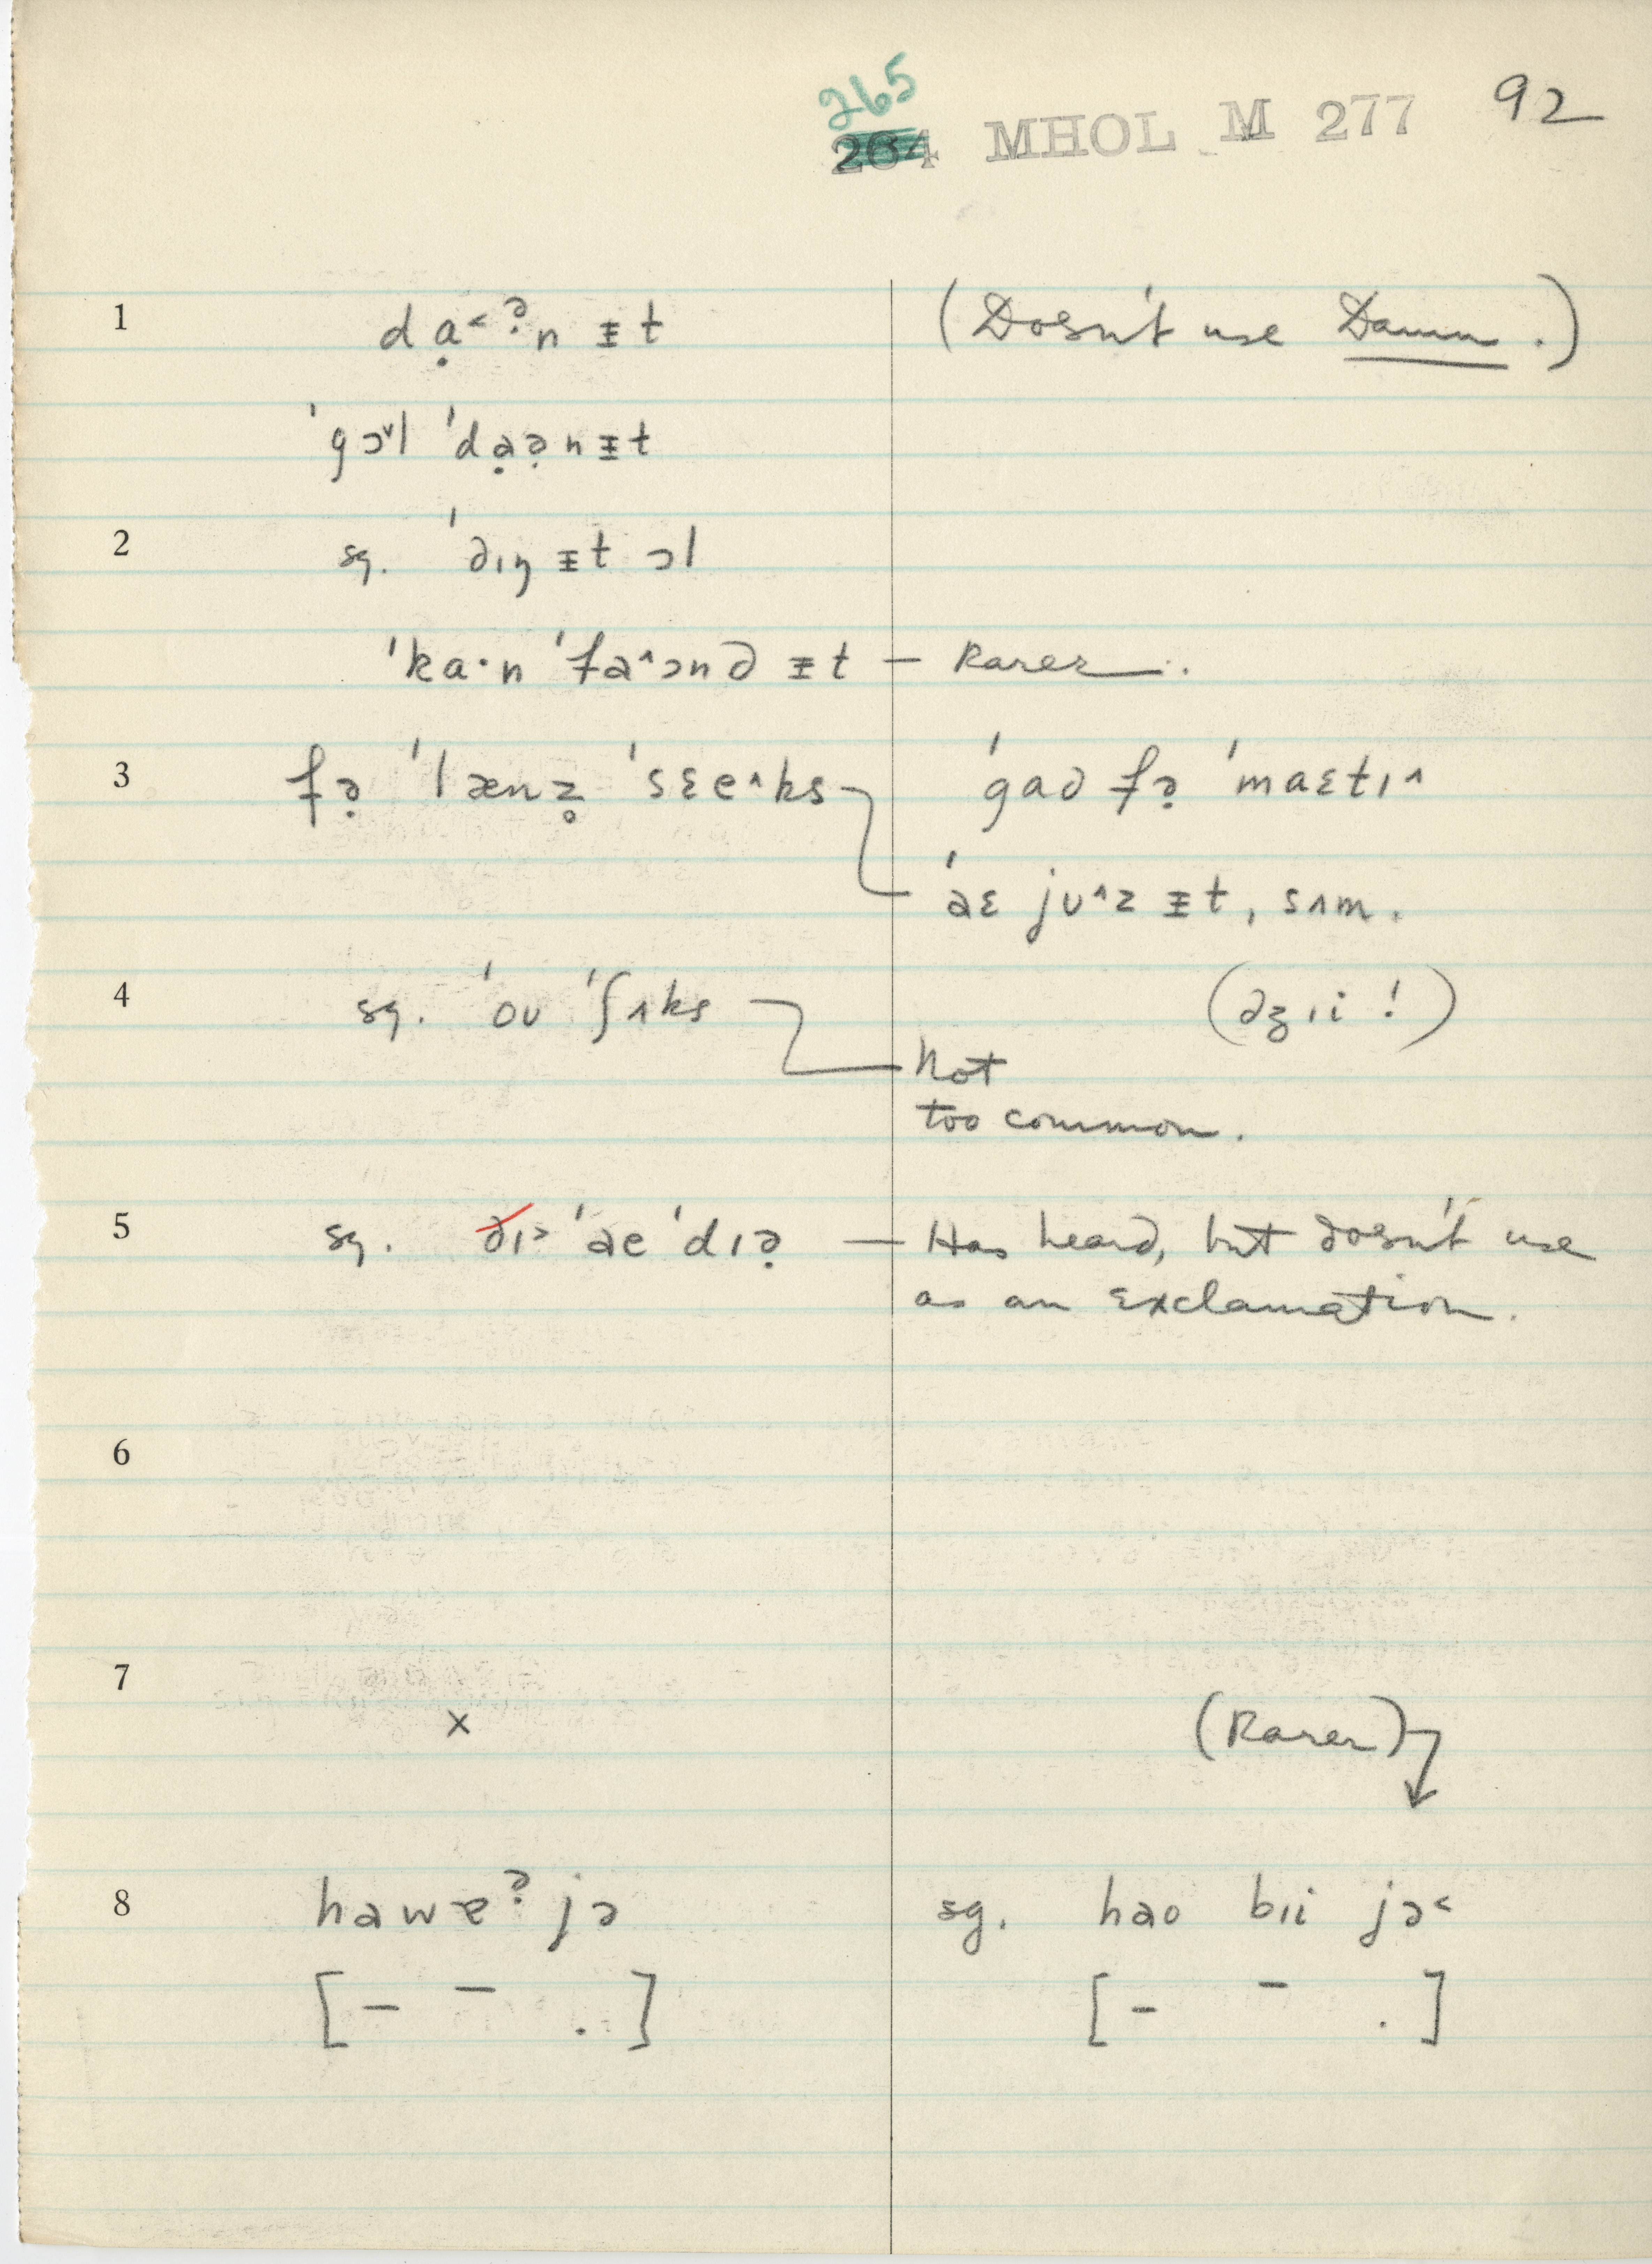 265
264 MHOL M 277 92
1 dạ˂ˀn ɪ̵t (Doesn't use Damn.)
ˈgɔ˅l ˈdạə̣nɪ̵t
2 sg. ˈdɪŋ ɪ̵t ɔl
ˈka·n ˈfa˄ɔnd ɪ̵t — Rarer.
3 fə̣ ˈlænz̥ ˈsɛe˄ks ˈgad fə̣ ˈmaɛtɪ˄
ˈaɛ jʊ˄z ɪ̵t, sʌm.
4 sg. ˈoʊ ˈʃʌks (dʒɪi!)
Not
too common.
5 sg. ðɪ˃ ˈae ˈdɪə̣ — Has heard, but doesn't use
as an exclamation.
6
7
x (Rarer)
8 hawɐˀ jə sg. hao bɪi jə˂
[– – .] [– – .]